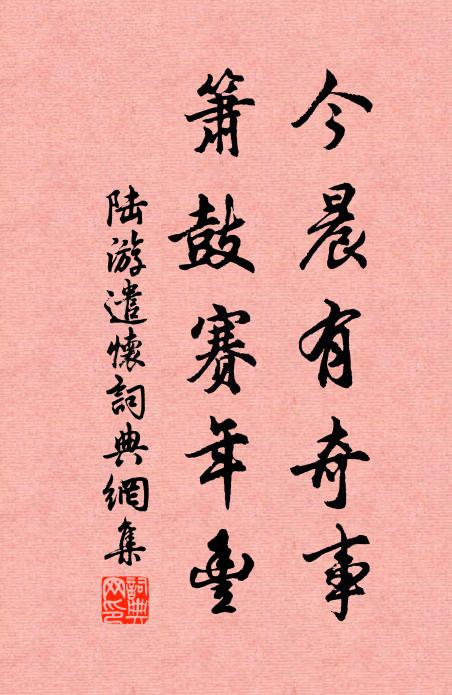 今晨有奇事
簫鼓赛年豐
陆游遣懷詞典網集
詞典网印